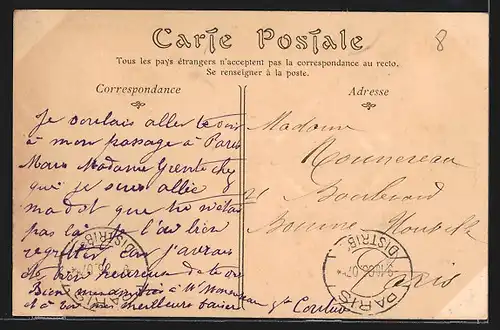 8
Carte Postale
Tous les pays étrangers n'acceptent pas la correspondance au recto.
Se renseigner à la poste.
Correspondance
Adresse
Je voulais aller te voir
à mon passage à Paris
Mais Madame Grente chez
qui je suis allée
m'a dit que tu n'étais
pas là je l'ai bien
regretté car j'aurais
été très heureuse de te voir
Bien
et à toi meilleurs baisers
Madame
21 Boulevard
Bonne Nouvelle
Paris
PARIS
DISTRIB
PARIS
DISTRIB